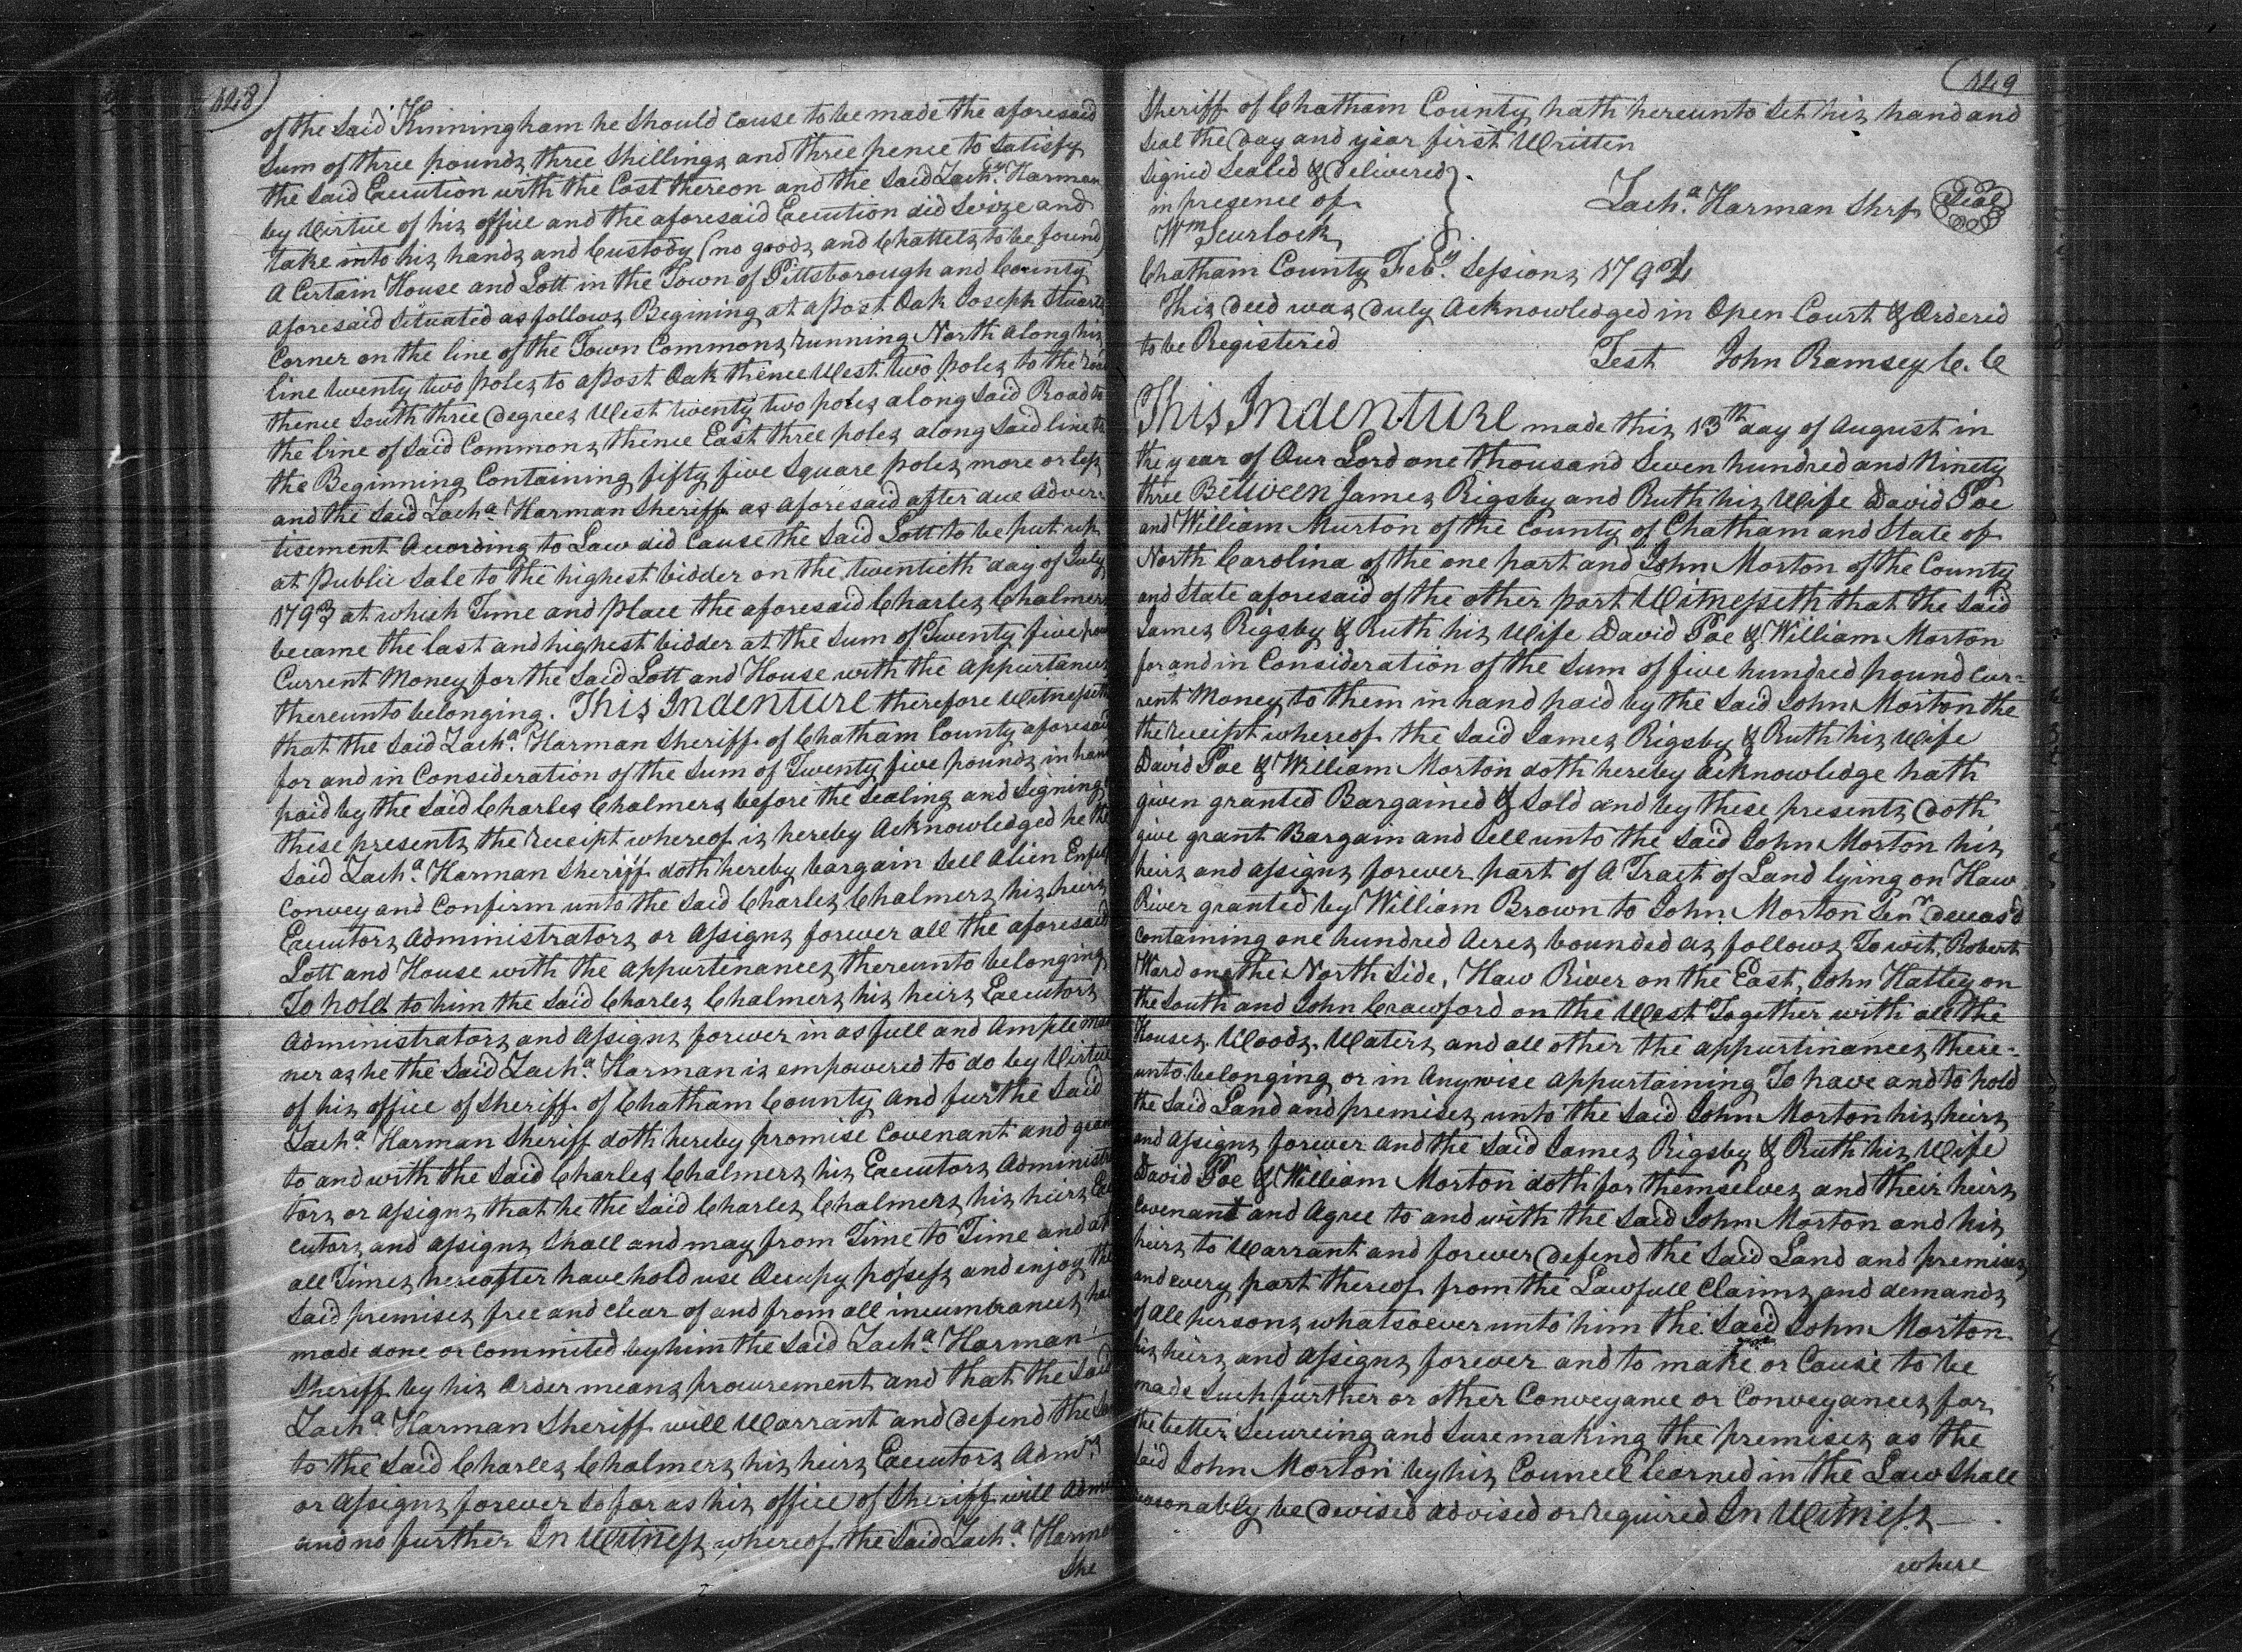 128
of the said Kinningham he should cause to be made the aforesaid
Sum of three pounds three Shillings and three pence to satisfy
the said Execution with the Cost thereon and the said Zach.a Harman
by Virtue of his office and the aforesaid Execution did Seize and
take into his hands and Custody (no goods and Chattels to be found)
A Certain House and Lott in the Town of Pittsborough and County
aforesaid Situated as follows Begining at a post Oak Joseph Stuarts
Corner on the line of the Town Commons running North along his
line twenty two poles to a post Oak thence West two poles to the road
thence South three Degrees West twenty two poles along said Road to
the line of said Commons thence East three poles along said line to
the Beginning Containing fifty five Square poles more or less
and the said Zach.a Harman Sheriff as aforesaid after due Adver-
tisement According to Law did Cause the said Lott to be put up
at public Sale to the highest bidder on the twentieth day of July
1793 at which Time and place the aforesaid Charles Chalmers
became the last and highest bidder at the Sum of Twenty five
Current Money for the said Lott and House with the appurtances
thereunto belonging. This Indenture therefore Witnesseth
that the said Zach.a Harman Sheriff of Chatham County aforesaid
for and in Consideration of the Sum of Twenty five pounds in hand
paid by the said Charles Chalmers before the Sealing and Signing
these presents the receipt whereof is hereby Acknowledged he the
said Zach.a Harman Sheriff doth hereby bargain Sell Alien
Convey and Confirm unto the said Charles Chalmers his heirs
Executors Administrators or Assigns forever all the aforesaid
Lott and House with the appurtenances thereunto belonging
To hold to him the said Charles Chalmers his heirs Executors
Administrators and Assigns forever in as full and Ample man
ner as he the said Zach.a Harman is empowered to do by Virtue
of his office of Sheriff of Chatham County and further Said
Zach.a Harman Sheriff doth hereby promise Covenant and grant
to and with the said Charles Chalmers his Executors Administra
tors or Assigns that he the said Charles Chalmers his heirs Exe
cutors and Assigns Shall and may from Time to Time and at
all Times hereafter have hold use Occupy possess and enjoy the
said premises free and clear of and from all incumbrances had
made done or commited by him the said Zach.a Harman
Sheriff by his Order means procurement and that the said
Zach.a Harman Sheriff will Warrant and defend the
to the said Charles Chalmers his heirs Executors Adm.rs
or Assigns forever so far as his office of Sheriff will Admit
and no further In Witness whereof the said Zach.a Harman
She
129
Sheriff of Chatham County hath hereunto Set his hand and
Seal the Day and year first Written
Signed Sealed & Delivered
in presence of
Zach.a Harman Shrf Seal
Wm Scurlock
Chatham County Feb.y Sessions 1794
This Deed was Duly Acknowledged in Open Court & Ordered
to be Registered
Test John Ramsey C. C
This Indenture made this 13th day of August in
the year of Our Lord one thousand Seven hundred and Ninety
three Between James Rigsby and Ruth his Wife David Poe
and William Murton of the County of Chatham and State of
North Carolina of the one part and John Morton of the County
and State aforesaid of the other part Witnesseth that the said
James Rigsby & Ruth his Wife David Poe & William Morton
for and in Consideration of the Sum of five hundred pound Cur-
rent Money to them in hand paid by the said John Morton the
the receipt whereof the said James Rigsby & Ruth his Wife
David Poe & William Morton doth hereby Acknowledge hath
given granted Bargained & Sold and by these presents Doth
give grant Bargain and Sell unto the said John Morton his
heirs and Assigns forever part of A Tract of Land lying on Haw
River granted by William Brown to John Morton Senr Deceasd
Containing one hundred Acres bounded as follows To wit, Robert
Ward on the North Side, Haw River on the East, John Hatley on
the South and John Crawford on the West Together with all the
Houses Woods Waters and all other the appurtinances there-
unto belonging or in Anywise Appurtaining To have and to hold
the said Land and premises unto the said John Morton his heirs
and Assigns forever and the said James Rigsby & Ruth his Wife
David Poe & William Morton doth for themselves and their heirs
Covenant and Agree to and with the said John Morton and his
heirs to Warrant and forever Defend the said Land and premises
and every part thereof from the Lawfull Claims and demands
of all persons whatsoever unto him the said John Morton
his heirs and Assigns forever and to make or Cause to be
made Such further or other Conveyance or Conveyances for
the better Secureing and Sure making the premises as the
said John Morton by his Councel learned in the Law Shall
reasonably be Devised advised or required In Witness
where